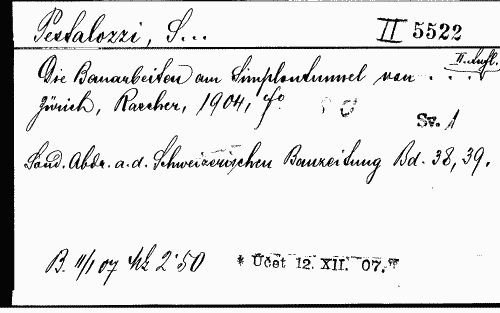 Pestalozzi, S... II 5522
Die Bauarbeiten am Simplontunnel von . . . . II. Aufl.
Zürich, Rascher, 1904, f°
Sv. 1
Sond. Abdr. a. d. Schweizerischen Bauzeitung Bd. 38, 39.
B. 11/1 07 Mk 2·50 * Účet 12. XII. 07.*